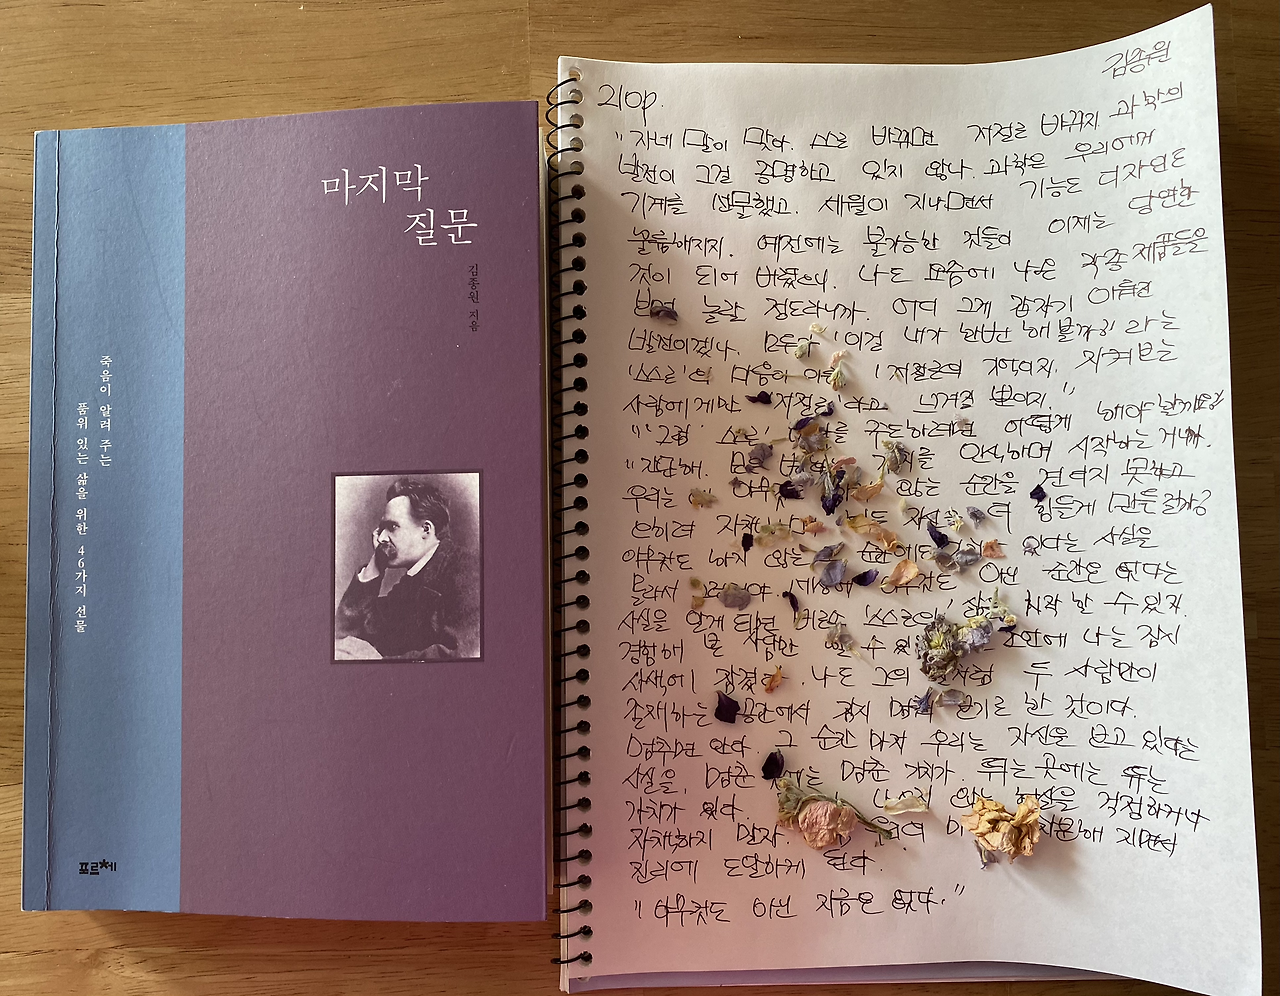 마지막
질문
김종원 지음
죽음이 알려 주는
품위 있는 삶을 위한 46가지 선물
프르체
김종원
210p.
"자네 말이 맞다. 스스로 바뀌면 저절로 바뀌지. 과학의
발전이 그걸 증명하고 있지 않나. 과학은 우리에게
기계를 선물했고. 세월이 지나면서 기능도 디자인도
훌륭해지지. 예전에는 불가능한 것들이 이제는 당연한
것이 되어 버렸으니. 나도 요즘에 나온 각종 제품들을
보면 놀랄 정도라니까. 어디 그게 갑자기 이뤄진
발전이겠나. 모두가 '이걸 내가 한번 해볼까?' 라는
'스스로'의 마음이 '저절로'의 기적이지. 지켜보는
사람에게만 '저절로'라고 느껴질 뿐이지."
"그럼 '스스로' 구도하려면 어떻게 해야 할까요?"
"간단해. 모든 가치를 인식하며 시작하는 거니까.
우리는 않는 순간을 견디지 못하고
오히려 자책 더 힘들게 만든 걸까?
아무것도 하지 않는 순간에도 있다는 사실을
몰라서 세상에 아무것도 아닌 순간은 없다는
사실을 알게 되면 바로 '스스로의' 삶을 시작 할 수 있지.
경험해 본 사람만 알 수 나는 잠시
사색에 잠겼다. 나도 그의 말처럼 두 사람만이
존재하는 공간에서 잠시 멈춰 있기로 한 것이다.
멈추면 안다. 그 순간 마저 우리는 자신을 보고 있다는
사실을. 멈춘 곳에는 멈춘 가치가. 뛰는 곳에는 뛰는
가치가 있다. 나오지 않는 현실을 걱정하거나
자책하지 말자. 질문해 지면서
진리에 도달하게 된다.
"아무것도 아닌 지금은 없다."